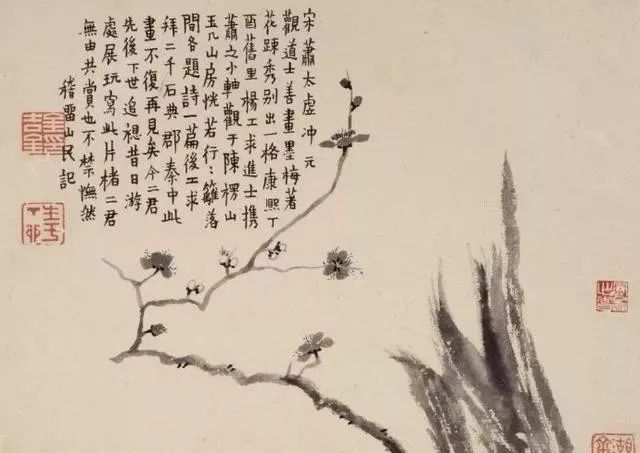 宋蕭太虛冲元
觀道士善畫墨梅著
花踈秀别出一格康熙丁
酉舊里楊工求進士携
蕭之小軸觀于陳楞山
玉几山房恍若行:籬落
間各題詩一篇後工求
拜二千石典郡秦中此
畫不復再見矣今二君
先後下世追想昔日游
處展玩寫此片楮二君
無由共賞也不禁憮然
稽畱山民記